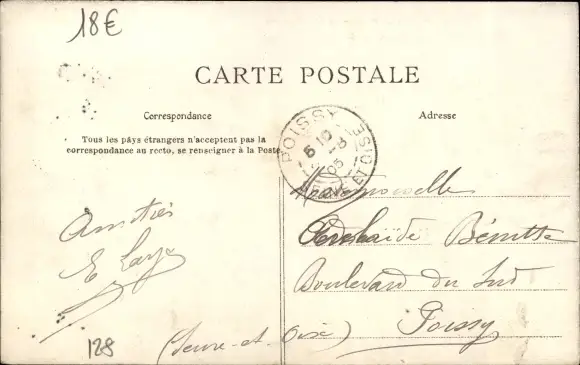 18€
CARTE POSTALE
Correspondance
Adresse
Tous les pays étrangers n'acceptent pas la
correspondance au recto, se renseigner à la Poste
POISSY
5 10
05
SEINE ET OISE
Amitiés
E
Mademoiselle
Adelaïde
Boulevard du Sud
Poissy
(Seine-et-Oise)
128